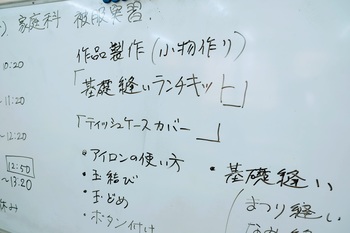 家庭科 被服実習.
10:20
作品製作(小物作り)
「基礎縫いランチキット」
~11:20
「ティッシュケースカバー 」
~12:20
・アイロンの使い方
・玉結び
・玉どめ
・ボタン付け
・基礎縫い
(まつり縫い
なみ縫い
12:50
~13:20
休み